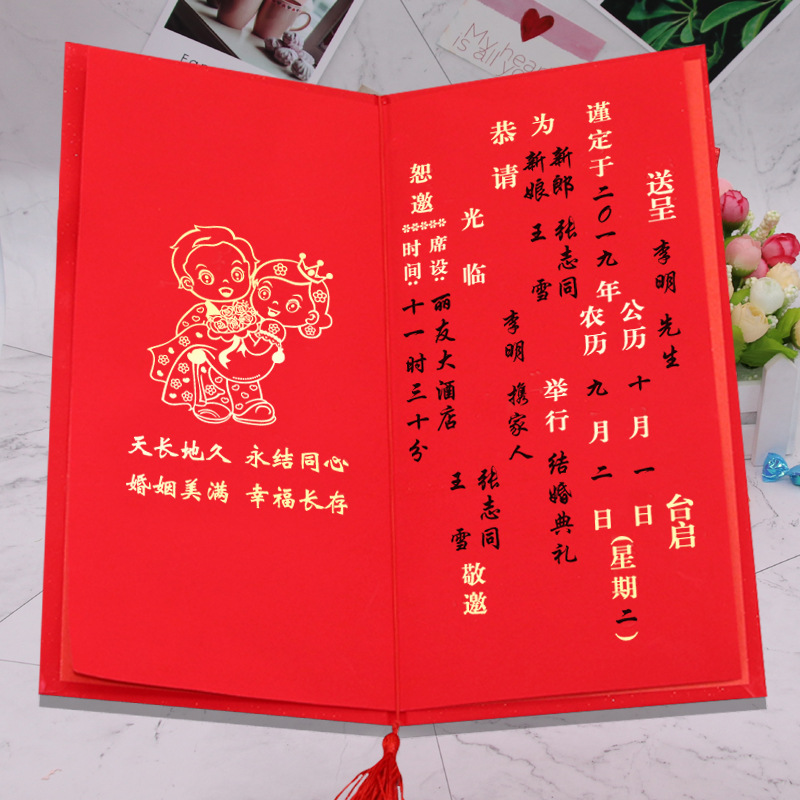 送呈 李明 先生 台启
谨定于二〇一九年
公历 十 月 一 日
农历 九 月 二 日
(星期二)
为 新郎 张志同
新娘 王 雪
举行 结婚典礼
恭请
李明 携家人
光临
张志同
王 雪
敬邀
恕邀
席设:丽友大酒店
时间:十一时三十分
天长地久 永结同心
婚姻美满 幸福长存
My heart
is all